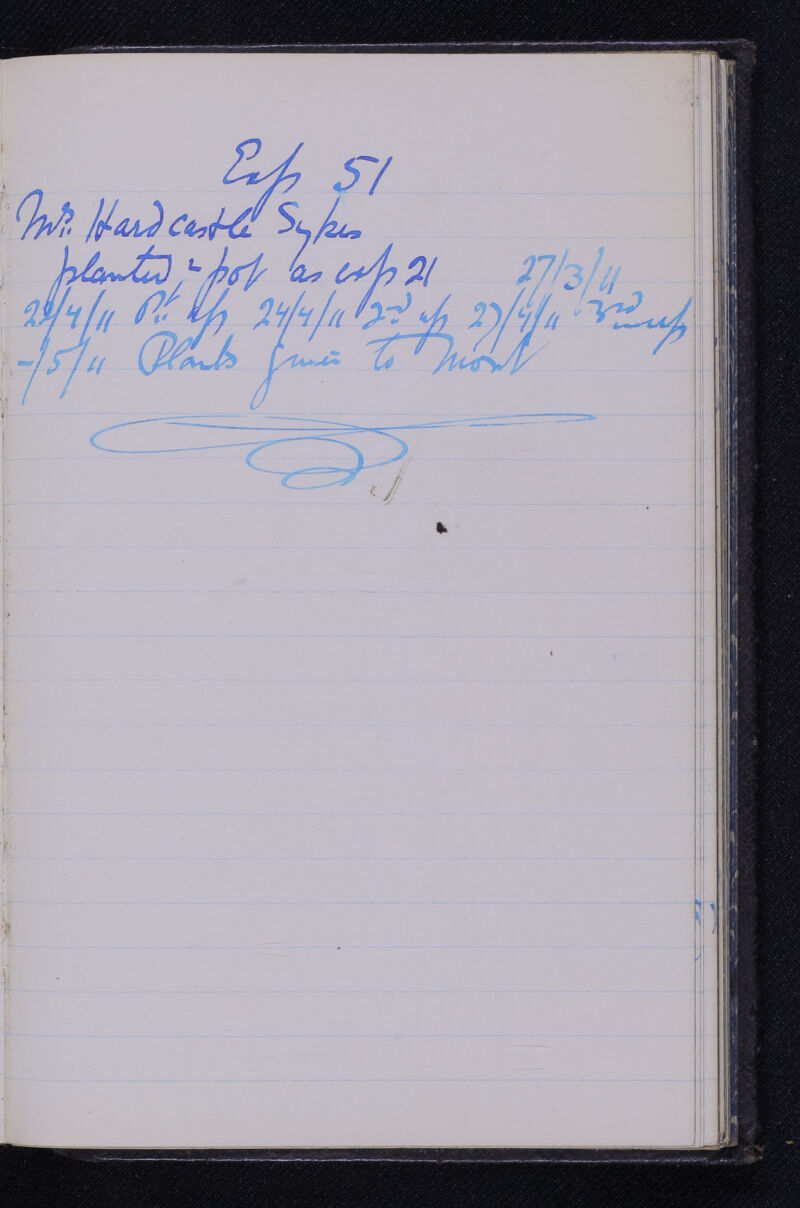 Exp 51
Mrs. Hardcastle Sykes
planted in pot as exp 21 27/3/11
22/4/11 Pl. up 24/4/11 2nd up 27/4/11 3rd up
-/5/11 Plants given to